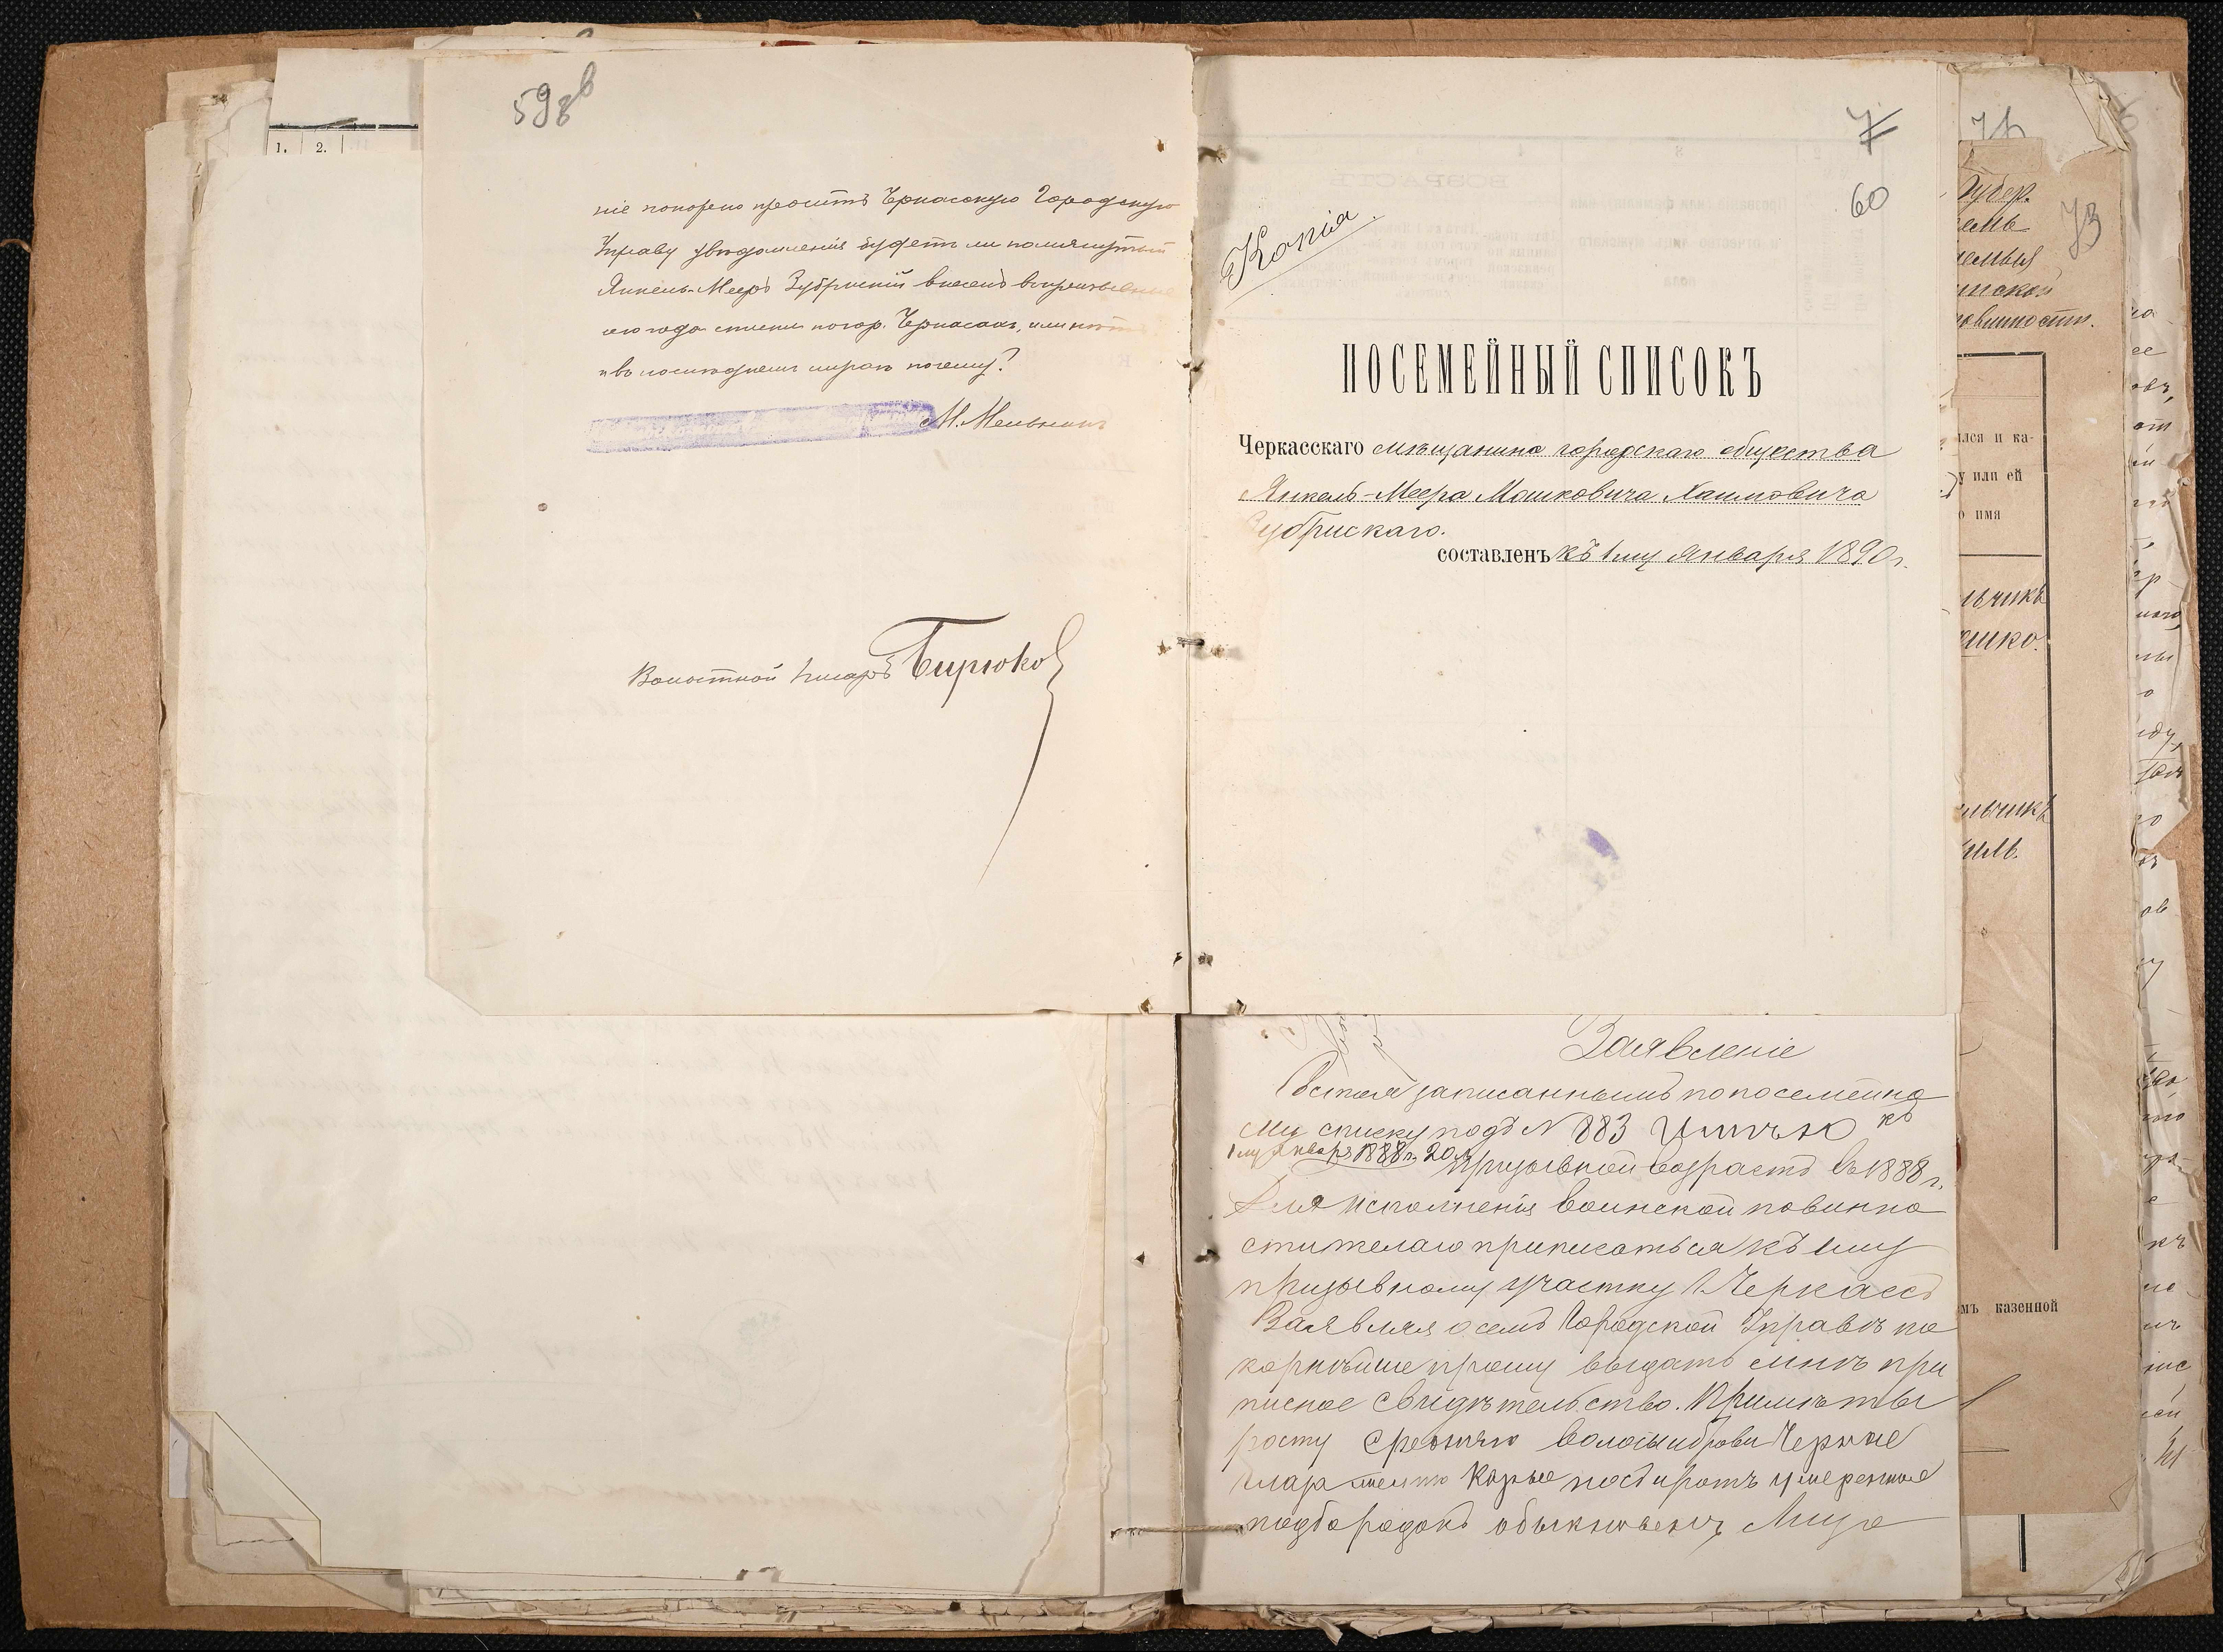 598в
1. 2.
ніе покорно просить Черкасскую Городскую
Управу увѣдомленія будетъ ли помянутый
Янкель-Мееръ Зубрискій внесенъ въ призывные
сего года списки по гор. Черкасамъ, или нѣтъ
и въ послѣднемъ случаѣ почему?
М. Мельникъ
Волостной Писарь Бирюков
7
60
Копія.
ПОСЕМЕЙНЫЙ СПИСОКЪ
Черкасскаго мѣщанина городскаго общества
Янкель-Меера Мошковича Хаимовича
Зубрискаго.
составленъ къ 1му Января 1890 г.
Заявленіе
Состоя записаннымъ по посемейно
му списку подъ N 883 къ
1му Января 1888 г. 20 л. призывной возрастъ въ 1888 г.
Для исполненія воинской повинно
сти желаю приписаться къ 1му
призывному участку г. Черкассъ
Заявляя о семъ Городской Управѣ по
корнѣйше прошу выдать мнѣ при
писное свидѣтельство. Примѣты
росту средняго волосы и брови Черные
глаза Карые носъ и ротъ умеренные
подбородокъ обыкновен. Лицо
71
73
Губер.
инской
овинности.
лся и ка-
у или ей
о имя
льчикъ
ошко.
льчикъ
мъ казенной